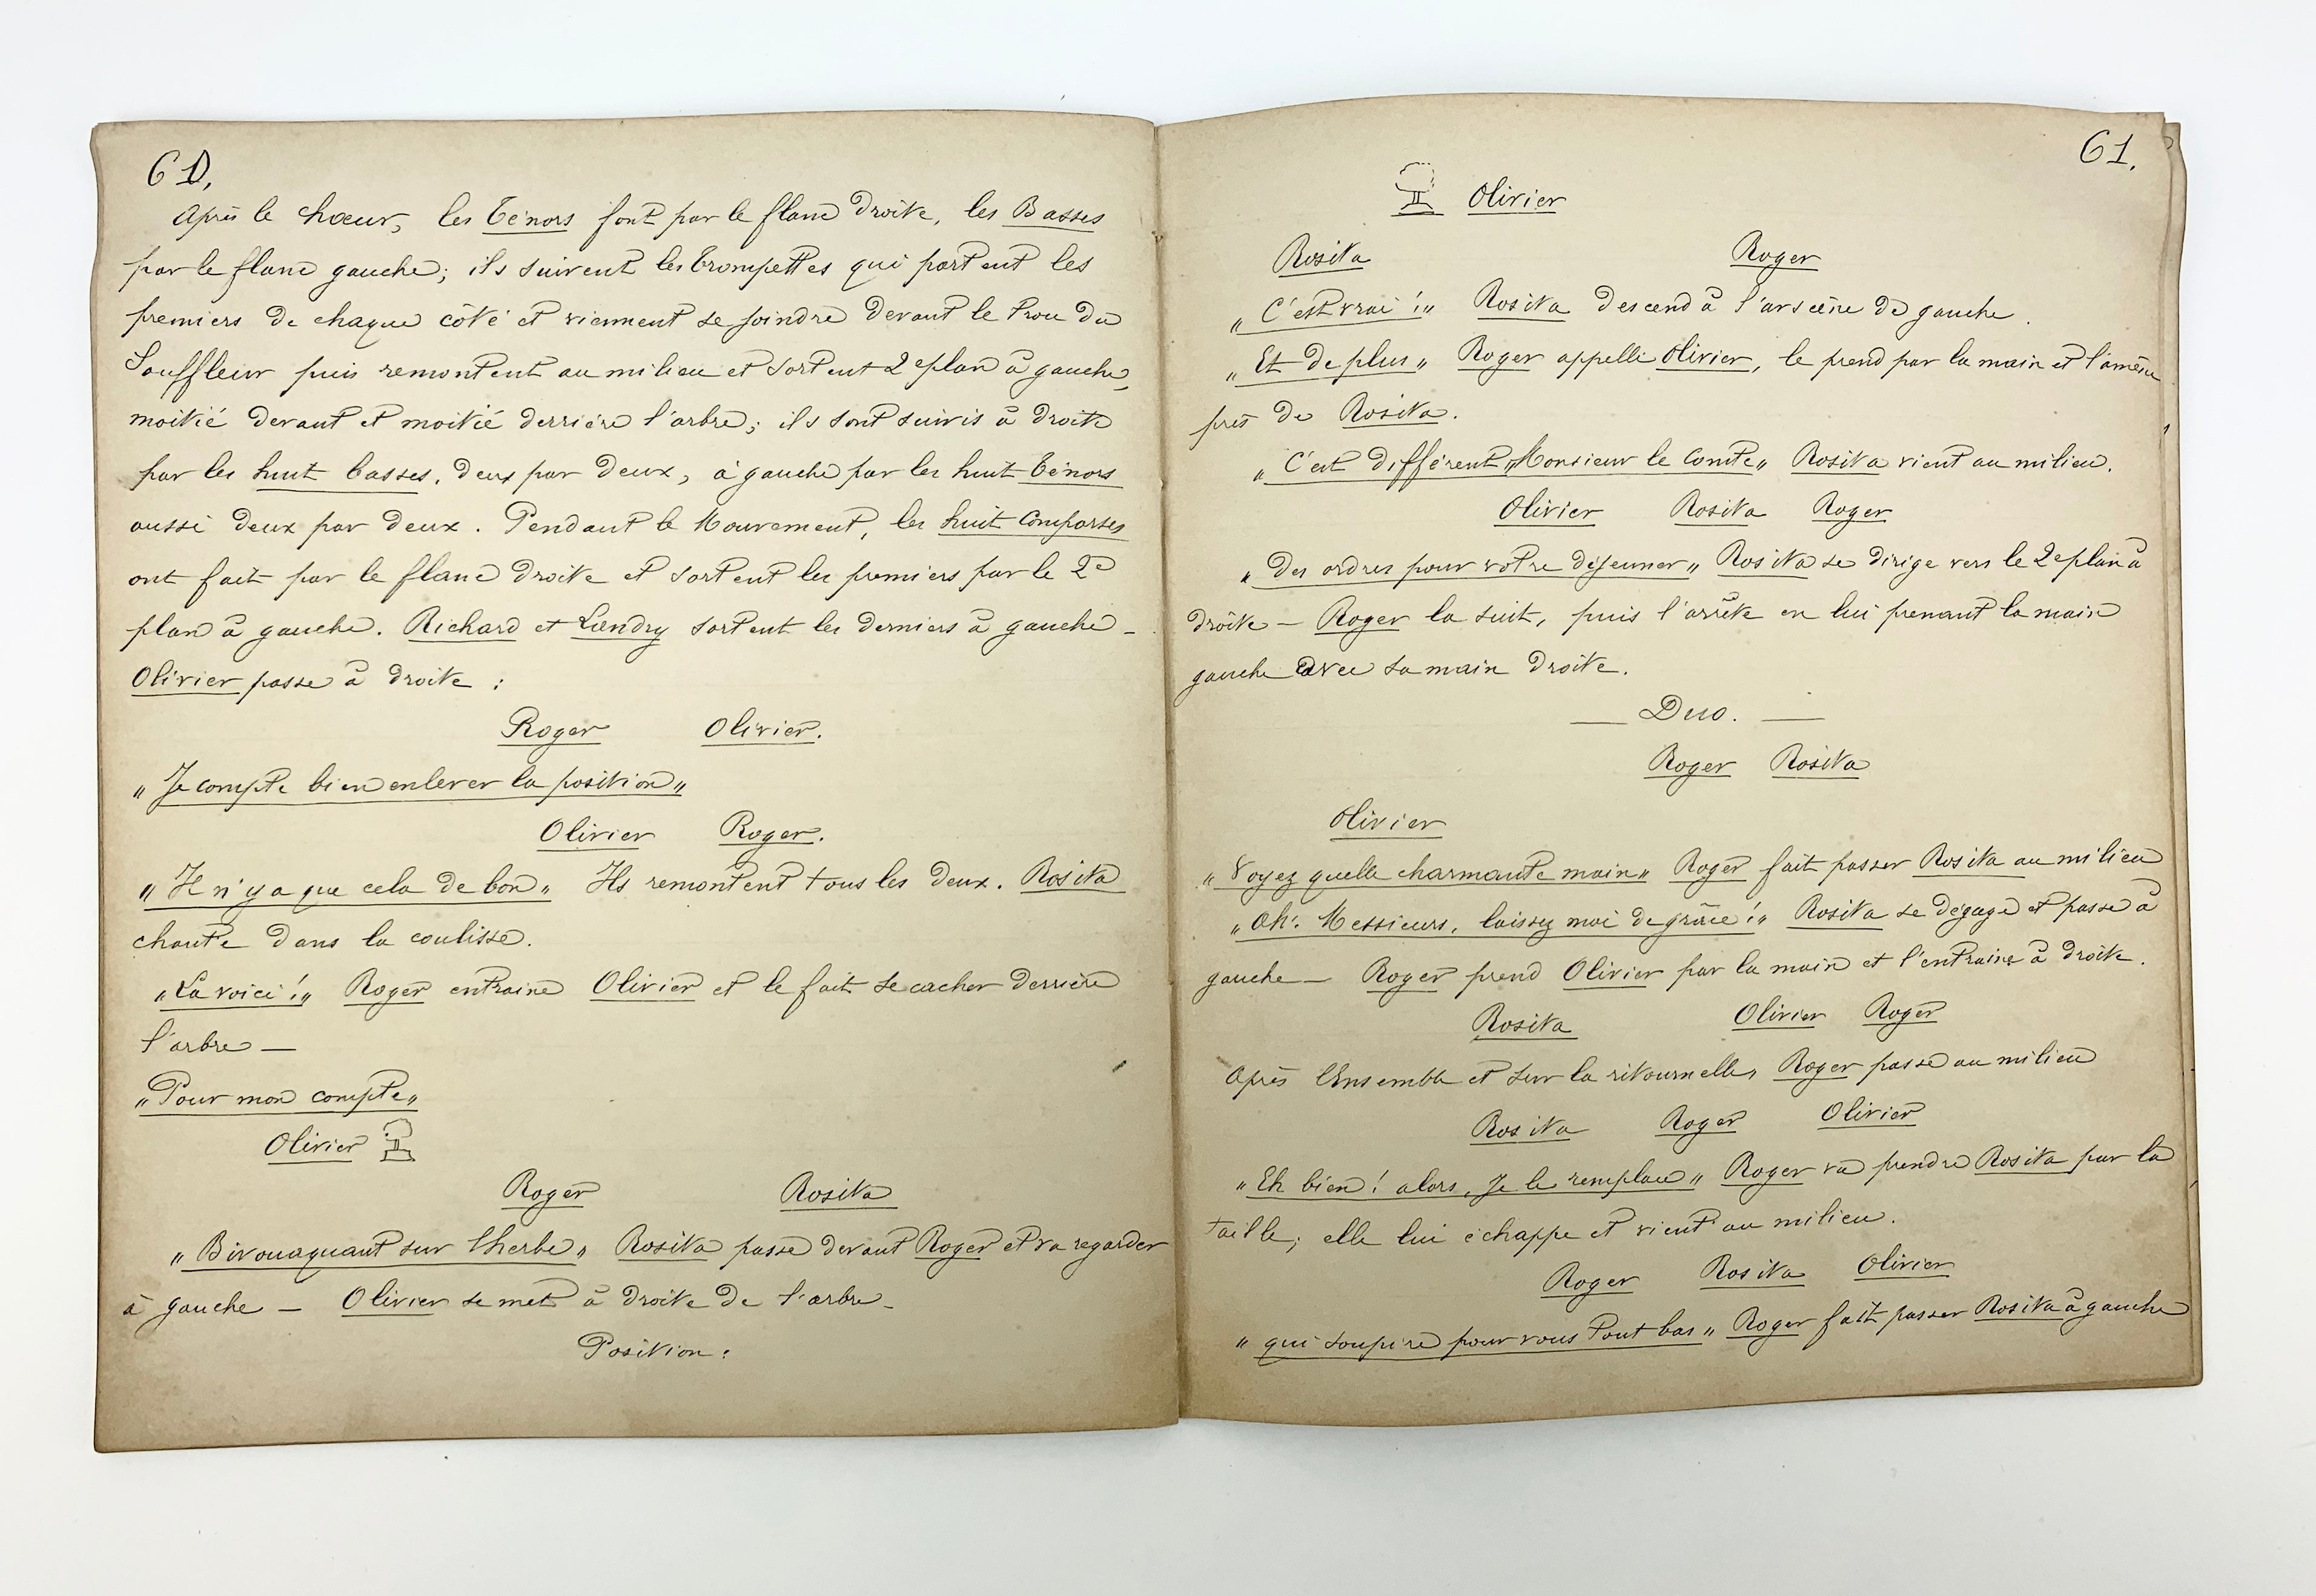 60.
Après le chœur, les Ténors font par le flanc droite, les Basses
par le flanc gauche; ils suivent les trompettes qui partent les
premiers de chaque côté et viennent se joindre devant le trou du
Souffleur puis remontent au milieu et sortent 2e plan à gauche,
moitié devant et moitié derrière l'arbre; ils sont suivis à droite
par les huit basses, deux par deux, à gauche par les huit Ténors
aussi deux par deux. Pendant le Mouvement, les huit Comparses
ont fait par le flanc droite et sortent les premiers par le 2e
plan à gauche. Richard et Landry sortent les derniers à gauche -
Olivier passe à droite :
Roger Olivier.
„Je compte bien enlever la position„
Olivier Roger.
„Il n'y a que cela de bon„ Ils remontent tous les deux. Rosita
chante dans la coulisse.
„La voici !„ Roger entraine Olivier et le fait se cacher derrière
l'arbre —
„Pour mon compte„
Olivier
Roger Rosita
„Bivouaquant sur l'herbe„ Rosita passe devant Roger et va regarder
à gauche — Olivier se met à droite de l'arbre -
Position :
61.
Olivier
Rosita Roger
„C'est vrai !„ Rosita descend à l'avscène de gauche.
„Et de plus„ Roger appelle Olivier, le prend par la main et l'amène
près de Rosita.
„C'est différent„Monsieur le Comte„ Rosita vient au milieu.
Olivier Rosita Roger
„Des ordres pour votre déjeuner„ Rosita se dirige vers le 2e plan à
droite — Roger la suit, puis l'arrête en lui prenant la main
gauche avec sa main droite.
— Duo. —
Roger Rosita
Olivier
„Voyez quelle charmante main„ Roger fait passer Rosita au milieu
„Oh! Messieurs, laissez moi de grâce !„ Rosita se dégage et passe à
gauche — Roger prend Olivier par la main et l'entraine à droite.
Rosita Olivier Roger
Après l'Ensemble et sur la ritournelle, Roger passe au milieu
Rosita Roger Olivier
„Eh bien ! alors, Je le remplace„ Roger va prendre Rosita par la
taille; elle lui échappe et vient au milieu.
Roger Rosita Olivier
„qui soupire pour vous tout bas„ Roger fait passer Rosita à gauche